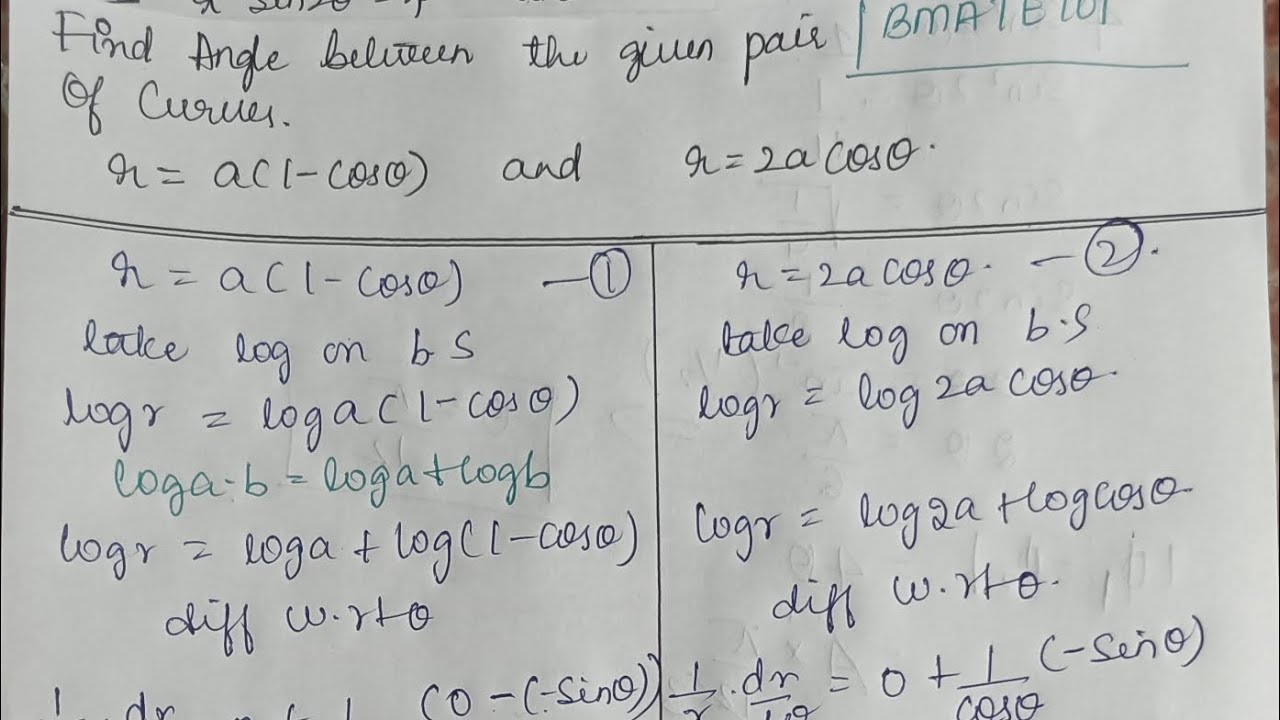 Find Angle between the given pair
BMATE101
Of Curves.
r = a(1-cosθ) and r = 2a cosθ.
r = a(1-cosθ) — ①
take log on b s
log r = log a(1-cosθ)
log a·b = log a + log b
log r = log a + log(1-cosθ)
diff w.r.t θ
(0-(-sinθ))
r = 2a cosθ. — ②.
take log on b.s
log r = log 2a cosθ.
log r = log 2a + log cosθ
diff w.r.t θ.
1/r . dr/dθ = 0 + 1/cosθ (-sinθ)